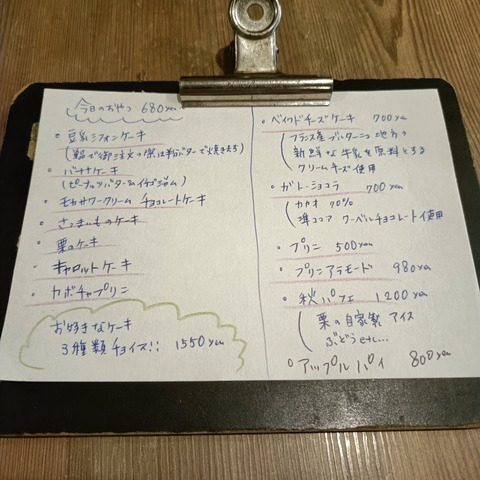 今日のおやつ 680yen
・豆乳シフォンケーキ
・バナナケーキ
(ピーナッツバター、ムイチゴジャム)
・モカサワークリーム チョコレートケーキ
・さつまいものケーキ
・栗のケーキ
・キャロットケーキ
・カボチャプリン
お好きなケーキ
3種類チョイス!! 1550yen
・ベイクドチーズケーキ 700yen
フランス産ブルターニュ地方の
新鮮な牛乳を原料とする
クリームチーズ使用
・ガトーショコラ 700yen
カカオ 70%
準ココア クーベルチョコレート使用
・プリン 500yen
・プリンアラモード 980yen
・秋パフェ 1200yen
栗の自家製アイス
ぶどうetc...
・アップルパイ 800yen